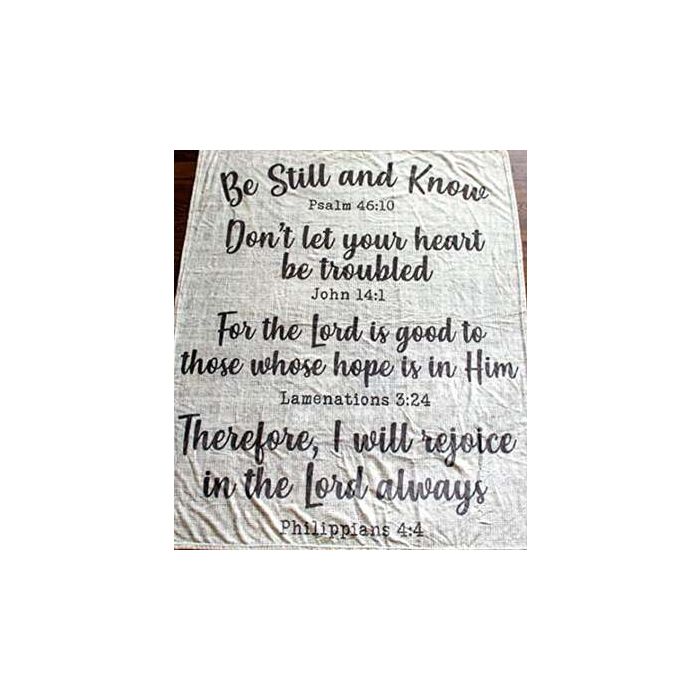 Be Still and Know
Psalm 46:10
Don't let your heart
be troubled
John 14:1
For the Lord is good to
those whose hope is in Him
Lamenations 3:24
Therefore, I will rejoice
in the Lord always
Philippians 4:4